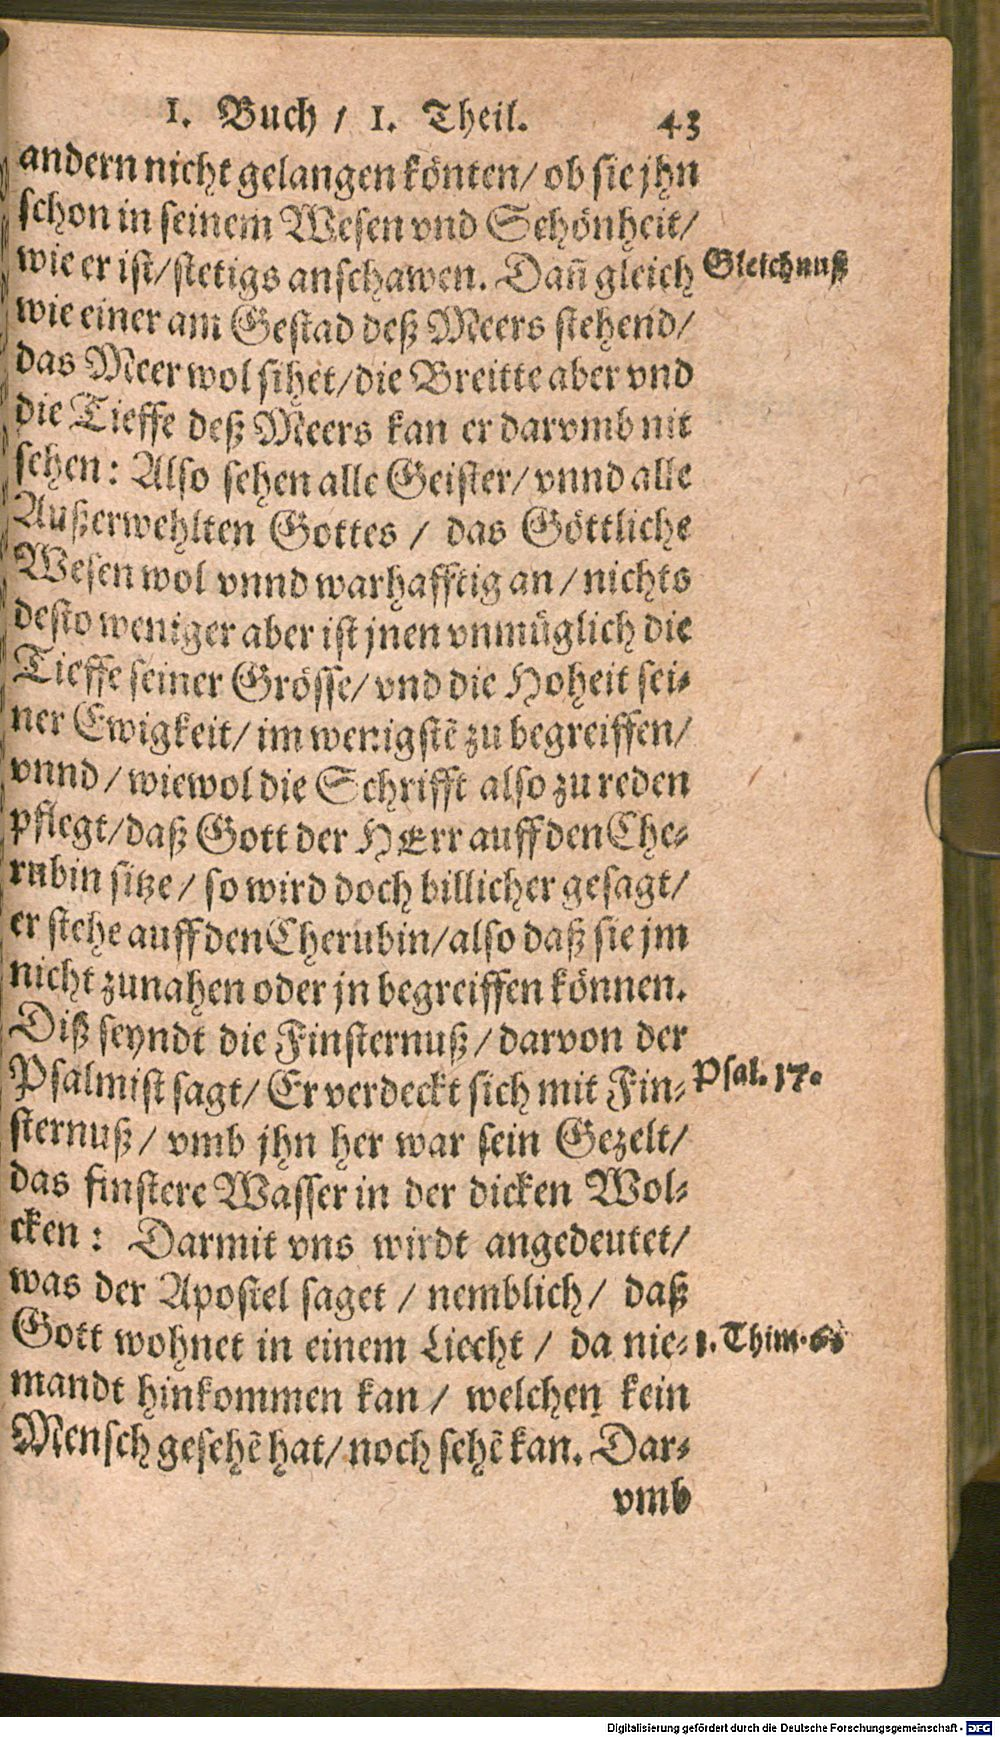 1. Buch / 1. Theil. 43
andern nicht gelangen könten/ ob sie jhn
schon in seinem Wesen vnd Schönheit/
wie er ist/ stetigs anschawen. Dañ gleich
Gleichnuß
wie einer am Gestad deß Meers stehend/
das Meer wol sihet/ die Breitte aber vnd
die Tieffe deß Meers kan er darvmb nit
sehen: Also sehen alle Geister/ vnnd alle
Außerwehlten Gottes / das Göttliche
Wesen wol vnnd warhafftig an / nichts
desto weniger aber ist jnen vnmüglich die
Tieffe seiner Grösse/ vnd die Hoheit sei-
ner Ewigkeit/ im wenigstẽ zu begreiffen/
vnnd / wiewol die Schrifft also zu reden
pflegt/ daß Gott der HErr auff den Che-
rubin sitze / so wird doch billicher gesagt/
er stehe auff den Cherubin/ also daß sie jm
nicht zunahen oder jn begreiffen können.
Diß seyndt die Finsternuß / darvon der
Psalmist sagt/ Er verdeckt sich mit Fin-
Psal. 17.
sternuß / vmb jhn her war sein Gezelt/
das finstere Wasser in der dicken Wol-
cken: Darmit vns wirdt angedeutet/
was der Apostel saget / nemblich / daß
Gott wohnet in einem Liecht / da nie-
1. Thim. 6.
mandt hinkommen kan / welchen kein
Mensch gesehẽ hat/ noch sehẽ kan. Dar-
vmb
Digitalisierung gefördert durch die Deutsche Forschungsgemeinschaft - DFG